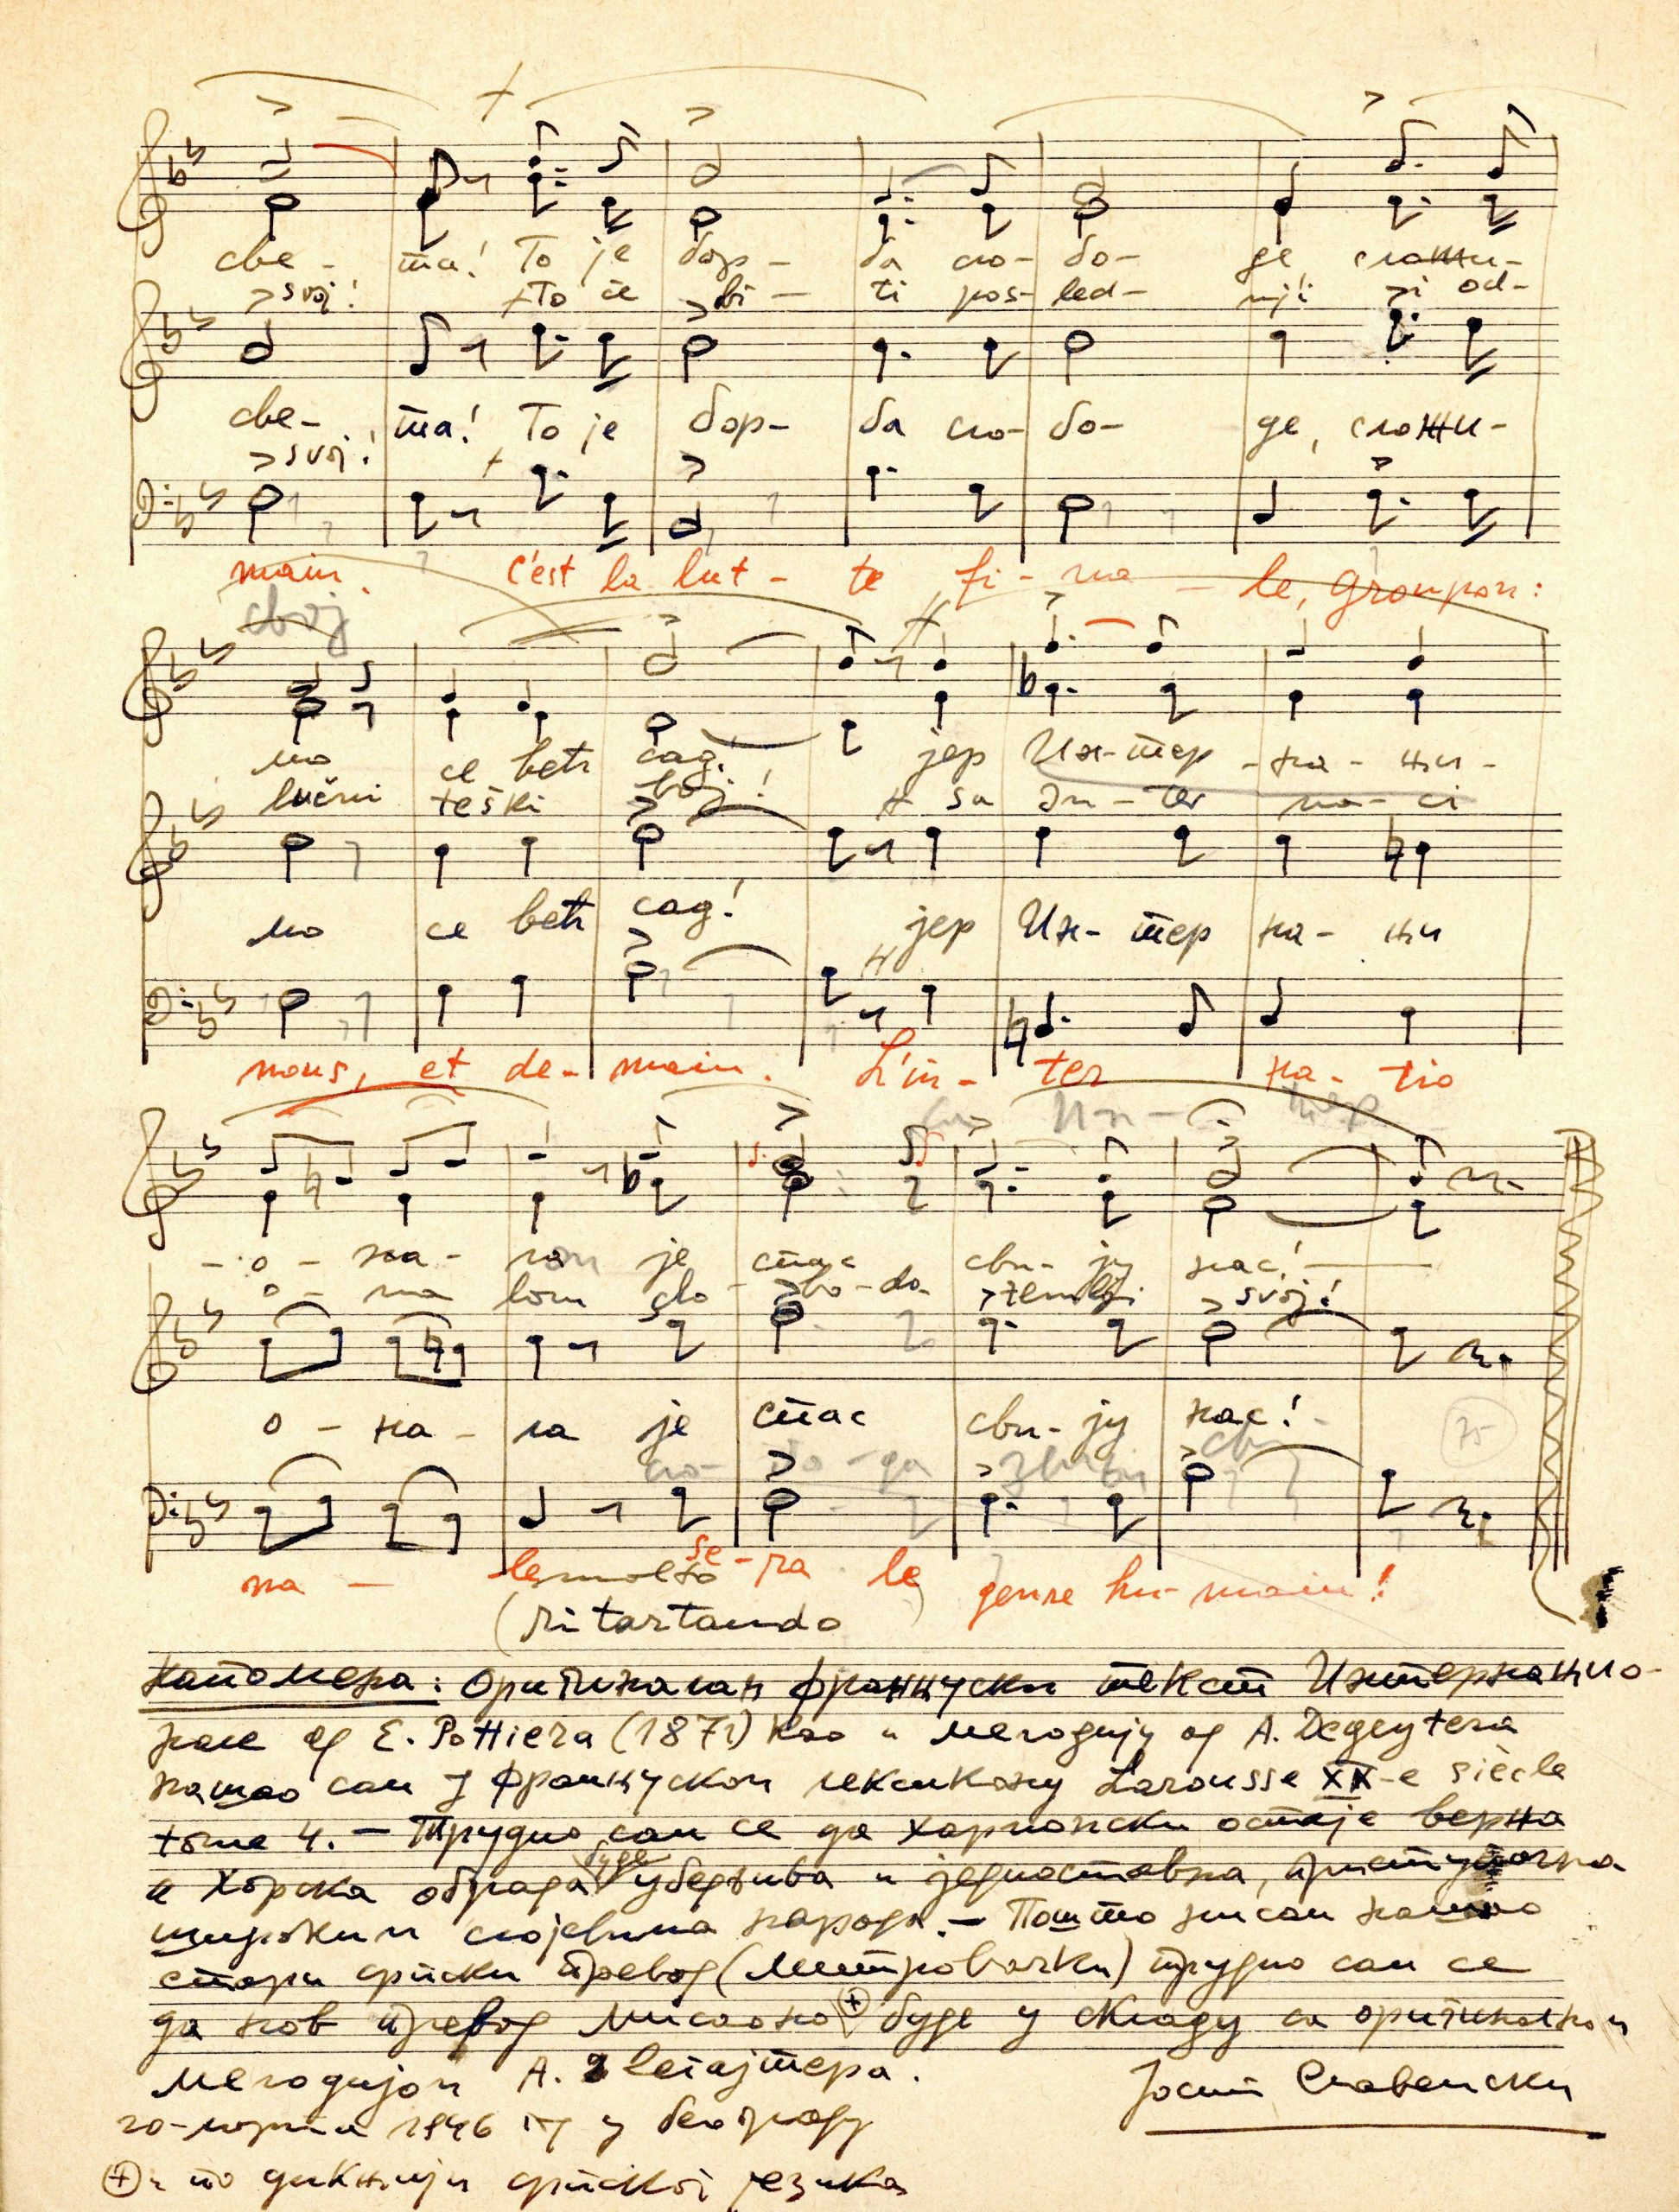 све- та! То је бор- ба сло- бо- де, сложи-
svoj! To će bi- ti pos- led- nji i od-
све- та! То је бор- ба сло- бо- де, сложи-
svoj!
main. c'est la lut- te fi- na - le, Groupon:
свој
мо се већ сад! јер Ин-тер -на- ци-
lučni teški boj! sa In-ter na- ci
мо се већ сад! јер Ин- тер на- ци
nous, et de- main. L'in- ter na- tio
Ин- тер
- о - на- ла је спас сви- ју нас!
o - na lom slo- bo-da zemlji svoj!
о - на- ла је спас сви- ју нас!
сло- бо -да
na - le se -ra le genre hu- main!
molto
(ritartando)
Напомена: Оригиналан француски текст Интернацио-
нале од E. Pottiera (1871) као и мелодију од A. Degeytera
нашао сам у француском лексикону Larousse XX-e siècle
tome 4. — Трудио сам се да хармонски остаје верна
и хорска обрада буде убедљива и једноставна, приступачна
широким слојевима народа. — Пошто нисам нашао
стари српски превод (Митровачки) трудио сам се
да нов превод мисаоно ⊕ буде у складу са оригиналном
мелодијом А. Дегајтера.
Јосип Славенски
20-марта 1946 г у Београду
⊕ и по дикцији српског језика